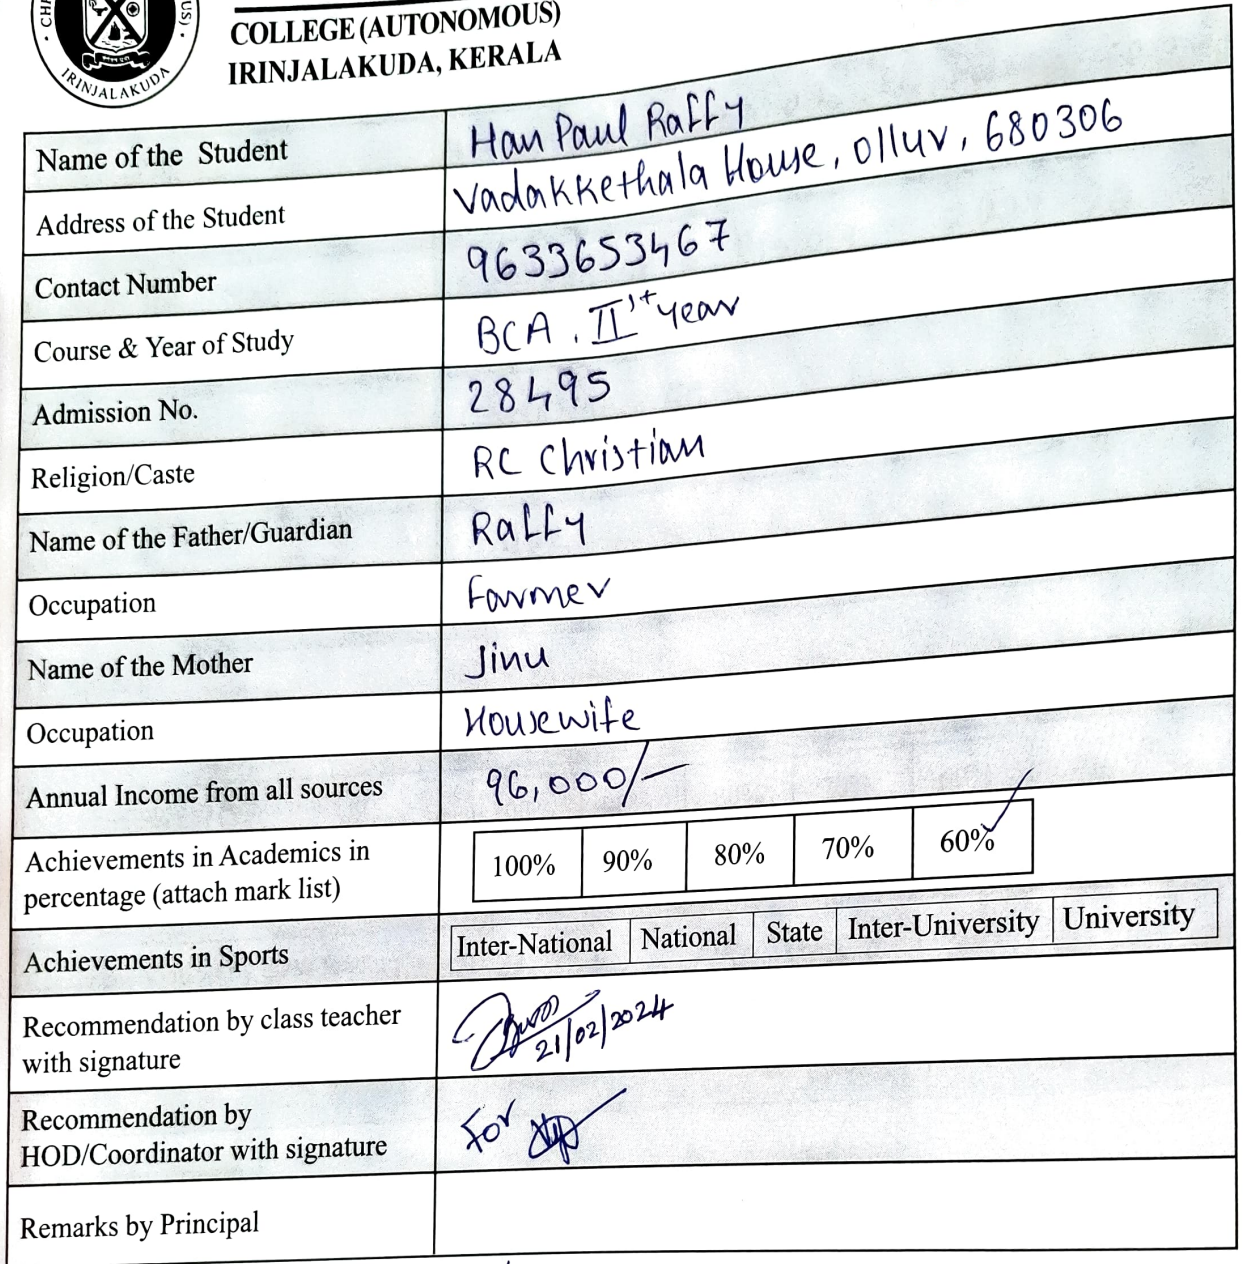 COLLEGE (AUTONOMOUS)
IRINJALAKUDA, KERALA
IRINJALAKUDA
Name of the Student Han Paul Raffy
Address of the Student Vadakkethala House, Ollur, 680306
Contact Number 9633653467
Course & Year of Study BCA, IIst year
Admission No. 28495
Religion/Caste RC Christian
Name of the Father/Guardian Raffy
Occupation Farmer
Name of the Mother Jinu
Occupation Housewife
Annual Income from all sources 96,000/-
Achievements in Academics in
percentage (attach mark list) 100% 90% 80% 70% 60%
Achievements in Sports Inter-National National State Inter-University University
Recommendation by class teacher
with signature 21/02/2024
Recommendation by
HOD/Coordinator with signature For
Remarks by Principal